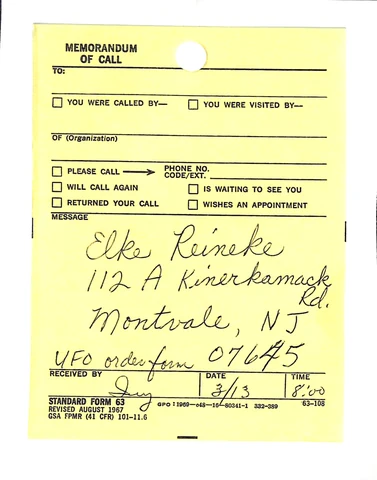 MEMORANDUM
OF CALL
TO:
YOU WERE CALLED BY— YOU WERE VISITED BY—
OF (Organization)
PLEASE CALL → PHONE NO. CODE/EXT.
WILL CALL AGAIN IS WAITING TO SEE YOU
RETURNED YOUR CALL WISHES AN APPOINTMENT
MESSAGE
Elke Reineke
112 A Kinerkamack
Rd.
Montvale, NJ
UFO order form 07645
RECEIVED BY DATE TIME
3/13 8:00
STANDARD FORM 63
REVISED AUGUST 1967
GSA FPMR (41 CFR) 101-11.6
GPO : 1969—o48—16—80341-1 332-389 63-108